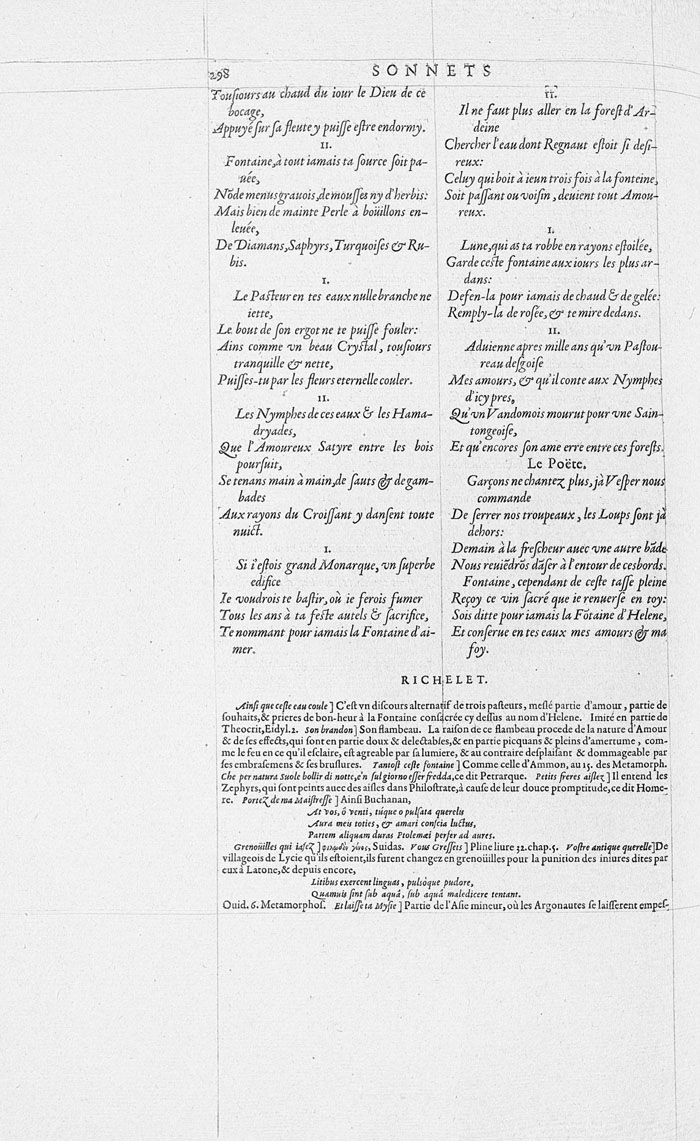 298
SONNETS
Touſiours au chaud du iour le Dieu de ce
bocage,
Appuyé ſur ſa fleute y puiſſe eſtre endormy.
II.
Fontaine, à tout iamais ta ſource ſoit pa-
uée,
Nõ de menus grauois, de mouſſes ny d'herbis:
Mais bien de mainte Perle à boüillons en-
leuée,
De Diamans, Saphyrs, Turquoiſes & Ru-
bis.
I.
Le Paſteur en tes eaux nulle branche ne
iette,
Le bout de ſon ergot ne te puiſſe fouler:
Ains comme vn beau Cryſtal, touſiours
tranquille & nette,
Puiſſes-tu par les fleurs eternelle couler.
II.
Les Nymphes de ces eaux & les Hama-
dryades,
Que l'Amoureux Satyre entre les bois
pourſuit,
Se tenans main à main, de ſauts & de gam-
bades
Aux rayons du Croiſſant y danſent toute
nuict.
I.
Si i'eſtois grand Monarque, vn ſuperbe
edifice
Ie voudrois te baſtir, où ie ferois fumer
Tous les ans à ta feſte autels & ſacrifice,
Te nommant pour iamais la Fontaine d'ai-
mer.
II.
Il ne faut plus aller en la foreſt d'Ar-
deine
Chercher l'eau dont Regnaut eſtoit ſi deſi-
reux:
Celuy qui boit à ieun trois fois à la fonteine,
Soit paſſant ou voiſin, deuient tout Amou-
reux.
I.
Lune, qui as ta robbe en rayons eſtoilée,
Garde ceſte fontaine aux iours les plus ar-
dans:
Defen-la pour iamais de chaud & de gelée:
Remply-la de roſée, & te mire dedans.
II.
Aduienne apres mille ans qu'vn Paſtou-
reau deſgoiſe
Mes amours, & qu'il conte aux Nymphes
d'icy pres,
Qu'vn Vandomois mourut pour vne Sain-
tongeoiſe,
Et qu'encores ſon ame erre entre ces foreſts.
Le Poëte.
Garçons ne chantez plus, jà Veſper nous
commande
De ſerrer nos troupeaux, les Loups ſont jà
dehors:
Demain à la freſcheur auec vne autre bãde
Nous reuiẽdrõs dãſer à l'entour de ces bords.
Fontaine, cependant de ceſte taſſe pleine
Reçoy ce vin ſacré que ie renuerſe en toy:
Sois ditte pour iamais la Fõtaine d'Helene,
Et conſerue en tes eaux mes amours & ma
foy.
RICHELET.
Ainſi que ceſte eau coule] C'eſt vn diſcours alternatif de trois paſteurs, meſlé partie d'amour, partie de
ſouhaits, & prieres de bon-heur à la Fontaine conſacrée cy deſſus au nom d'Helene. Imité en partie de
Theocrit, Eidyl. 2. Son brandon] Son flambeau. La raiſon de ce flambeau procede de la nature d'Amour
& de ſes effects, qui ſont en partie doux & delectables, & en partie picquans & pleins d'amertume, com-
me le feu en ce qu'il eſclaire, eſt agreable par ſa lumiere, & au contraire deſplaiſant & dommageable par
ſes embraſemens & ſes bruſlures. Tantoſt ceſte fontaine] Comme celle d'Ammon, au 15. des Metamorph.
Che per natura Suole bollir di notte, e'n ſul giorno eſſer fredda, ce dit Petrarque. Petits freres aiſlez] Il entend les
Zephyrs, qui ſont peints auec des aiſles dans Philoſtrate, à cauſe de leur douce promptitude, ce dit Home-
re. Portez de ma Maiſtreſſe] Ainſi Buchanan,
At vos, ô venti, túque o pulſata querelis
Aura meis toties, & amari conſcia luctus,
Partem aliquam duras Ptolemæi perfer ad aures.
Grenoüilles qui iaſez] Suidas. Vous Greſſets] Pline liure 32. chap. 5. Voſtre antique querelle] De
villageois de Lycie qu'ils eſtoient, ils furent changez en grenoüilles pour la punition des iniures dites par
eux à Latone, & depuis encore,
Litibus exercent linguas, pulsóque pudore,
Quamuis ſint ſub aquâ, ſub aquâ maledicere tentant.
Ouid. 6. Metamorphoſ. Et laiſſe ta Myſie] Partie de l'Aſie mineur, où les Argonautes ſe laiſſerent empeſ-